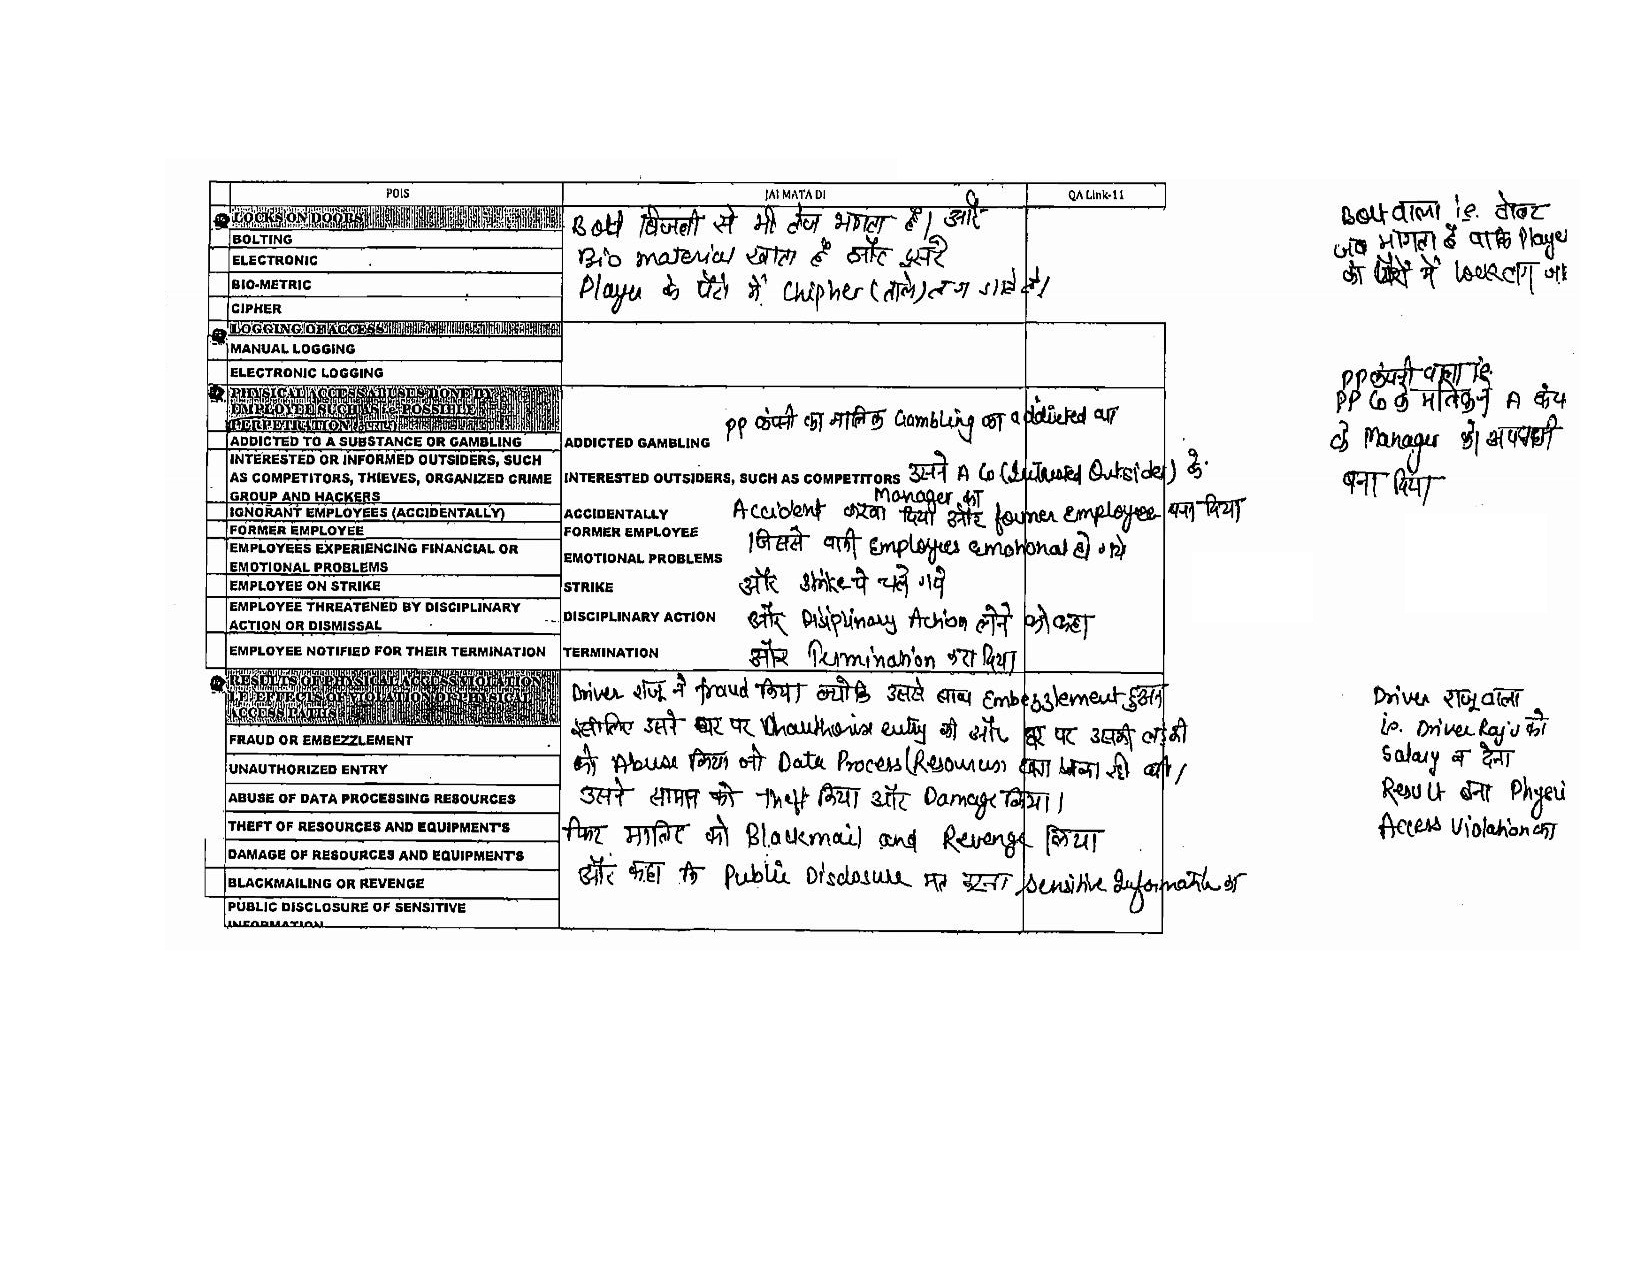 POIS JAI MATA DI QA Link-11
LOCKS ON DOORS
BOLTING
ELECTRONIC
BIO-METRIC
CIPHER
Bolt बिजली से भी तेज भागता है। और
Bio material खाता है और दूसरे
Player के पैरों में Chipher (ताले) लग जाते है।
Bolt वाला i.e. बोल्ट
जब भागता है बाकि Playe
को पैरों में लग जा
LOGGING OF ACCESS
MANUAL LOGGING
ELECTRONIC LOGGING
PHYSICAL ACCESS ABUSES DONE BY
EMPLOYEE SUCH AS POSSIBLE
PERPETRATION
ADDICTED TO A SUBSTANCE OR GAMBLING
INTERESTED OR INFORMED OUTSIDERS, SUCH
AS COMPETITORS, THIEVES, ORGANIZED CRIME
GROUP AND HACKERS
IGNORANT EMPLOYEES (ACCIDENTALLY)
FORMER EMPLOYEE
EMPLOYEES EXPERIENCING FINANCIAL OR
EMOTIONAL PROBLEMS
EMPLOYEE ON STRIKE
EMPLOYEE THREATENED BY DISCIPLINARY
ACTION OR DISMISSAL
EMPLOYEE NOTIFIED FOR THEIR TERMINATION
PP कंपनी का मालिक Gambling का addicted था
ADDICTED GAMBLING
INTERESTED OUTSIDERS, SUCH AS COMPETITORS उसने A Co (Interested Outsider) के
Manager का
ACCIDENTALLY Accident करवा दिया और former employee बना दिया
FORMER EMPLOYEE
EMOTIONAL PROBLEMS जिससे बाकी Employees emotional हो गये
STRIKE और strike पे चले गये
DISCIPLINARY ACTION और Disiplinary Action लेने को कहा
TERMINATION और Termination करा दिया
PP कंपनी वाला i.e.
PP Co के मालिक ने A कंप
के Manager को अपराधी
बना दिया
RESULTS OF PHYSICAL ACCESS VIOLATION
I.E EFFECTS OF VIOLATION OF PHYSICAL
ACCESS PATHS
FRAUD OR EMBEZZLEMENT
UNAUTHORIZED ENTRY
ABUSE OF DATA PROCESSING RESOURCES
THEFT OF RESOURCES AND EQUIPMENT'S
DAMAGE OF RESOURCES AND EQUIPMENT'S
BLACKMAILING OR REVENGE
PUBLIC DISCLOSURE OF SENSITIVE
INFORMATION
Driver राजू ने fraud किया क्योकि उसके साथ Embezzlement हुआ
इसीलिए उसने घर पर Unauthorise entry की और घर पर उसकी लड़की
को Abuse किया जो Data Process (Resources) कर रही थी।
उसने सामान को theft किया और Damage किया।
फिर मालिक को Blackmail and Revenge लिया
और कहा कि Public Disclosure मत करना Sensitive Information का
Driver राजू वाला
i.e. Driver Raju को
Salary न देना
Result बना Physi
Access Violation का